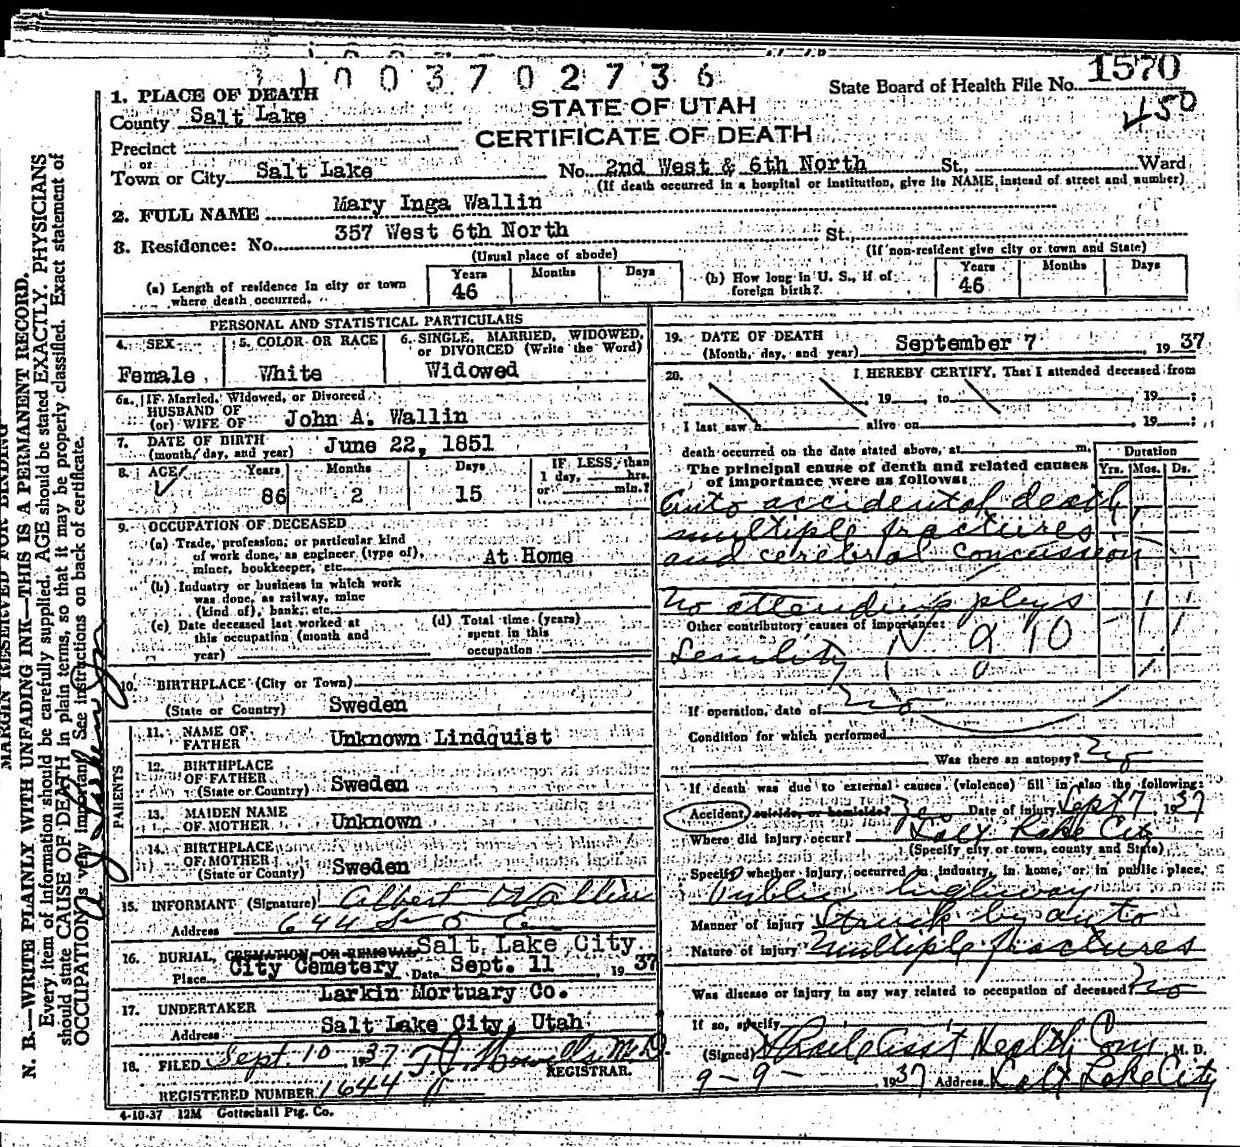 1003702736
State Board of Health File No. 1570
150
STATE OF UTAH
CERTIFICATE OF DEATH
1. PLACE OF DEATH
County Salt Lake
Precinct
or
Town or City Salt Lake No. 2nd West & 6th North St, Ward
(If death occurred in a hospital or institution, give its NAME instead of street and number)
2. FULL NAME Mary Inga Wallin
3. Residence: No. 357 West 6th North St,
(Usual place of abode) (If non-resident give city or town and State)
(a) Length of residence in city or town where death occurred. Years 46 Months Days
(b) How long in U. S., if of foreign birth? Years 46 Months Days
PERSONAL AND STATISTICAL PARTICULARS
4. SEX Female
5. COLOR OR RACE White
6. SINGLE, MARRIED, WIDOWED, or DIVORCED (Write the Word) Widowed
6a. If Married, Widowed, or Divorced
HUSBAND OF
(or) WIFE OF John A. Wallin
7. DATE OF BIRTH
(month, day, and year) June 22, 1851
8. AGE Years 86 Months 2 Days 15 IF LESS than 1 day, hrs. or min.?
9. OCCUPATION OF DECEASED
(a) Trade, profession, or particular kind
of work done, as engineer (type of),
miner, bookkeeper, etc. At Home
(b) Industry or business in which work
was done, as railway, mine
(kind of), bank, etc.
(c) Date deceased last worked at
this occupation (month and
year)
(d) Total time (years)
spent in this
occupation
10. BIRTHPLACE (City or Town)
(State or Country) Sweden
PARENTS
11. NAME OF FATHER Unknown Lindquist
12. BIRTHPLACE OF FATHER
(State or Country) Sweden
13. MAIDEN NAME OF MOTHER Unknown
14. BIRTHPLACE OF MOTHER
(State or County) Sweden
15. INFORMANT (Signature) Albert Wallin
Address 644 So 5 E
16. BURIAL, CREMATION OR REMOVAL Salt Lake City
Place City Cemetery Date Sept. 11, 1937
17. UNDERTAKER Larkin Mortuary Co.
Address Salt Lake City, Utah
18. FILED Sept. 10 1937 T J Howells M.D.
REGISTRAR.
REGISTERED NUMBER 1644
4-10-37 12M Gottschall Ptg. Co.
19. DATE OF DEATH
(Month, day, and year) September 7 1937
20. I HEREBY CERTIFY, That I attended deceased from
19 to 19 ;
I last saw h alive on 19 ;
death occurred on the date stated above, at m.
The principal cause of death and related causes
of importance were as follows:
Duration
Yrs. Mos. Ds.
Auto accidental death,
multiple fractures
and cerebral concussion
No attending phys
Other contributory causes of importance:
Senility
If operation, date of no
Condition for which performed
Was there an autopsy? No
If death was due to external causes (violence) fill in also the following:
Accident, suicide, or homicide? Yes Date of injury Sept 7 1937
Where did injury occur? Salt Lake City
(Specify city or town, county and State)
Specify whether injury occurred in industry, in home, or in public place.
Public highway
Manner of injury Struck by auto
Nature of injury Multiple fractures
Was disease or injury in any way related to occupation of deceased? No
If so, specify
(Signed) Asst Health Com M. D.
9-9- 1937 Address Salt Lake City
MARGIN RESERVED FOR BINDING
N. B.—WRITE PLAINLY WITH UNFADING INK—THIS IS A PERMANENT RECORD.
Every item of information should be carefully supplied. AGE should be stated EXACTLY. PHYSICIANS
should state CAUSE OF DEATH in plain terms, so that it may be properly classified. Exact statement of
OCCUPATION is very important. See instructions on back of certificate.